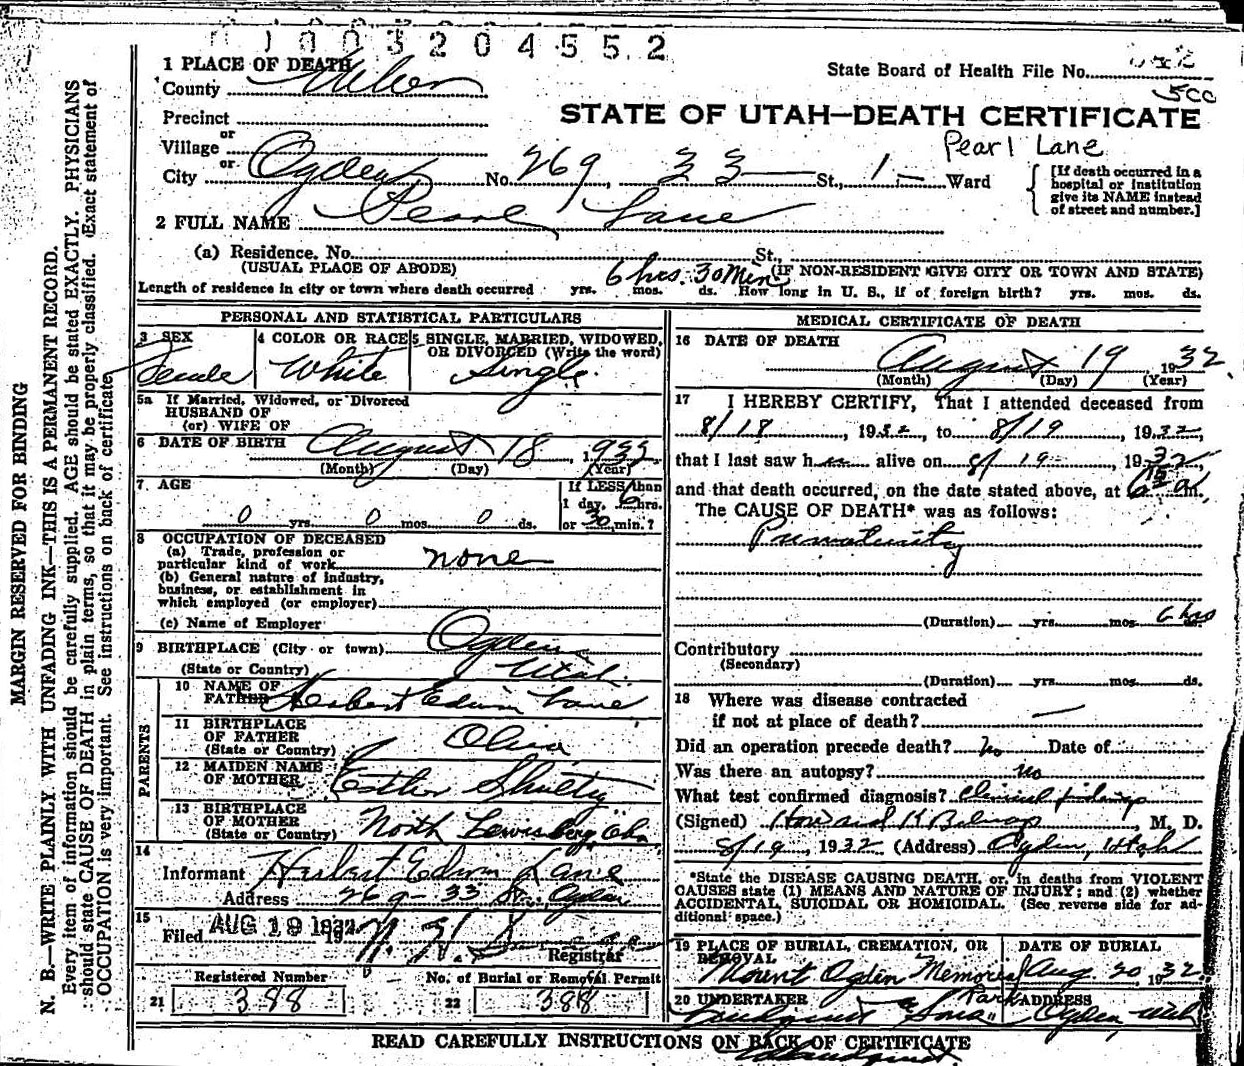 1003204552
1 PLACE OF DEATH
State Board of Health File No.
County Weber
500
STATE OF UTAH—DEATH CERTIFICATE
Precinct
or
Village
Pearl Lane
or
City Ogden No. 269, 33 St., 1 Ward
[If death occurred in a
hospital or institution
give its NAME instead
of street and number.]
2 FULL NAME Pearl Lane
(a) Residence. No. St.,
(USUAL PLACE OF ABODE) 6 hrs. 30 Min (IF NON-RESIDENT GIVE CITY OR TOWN AND STATE)
Length of residence in city or town where death occurred yrs. mos. ds. How long in U. S., if of foreign birth? yrs. mos. ds.
PERSONAL AND STATISTICAL PARTICULARS
3 SEX
Female
4 COLOR OR RACE
White
5 SINGLE, MARRIED, WIDOWED,
OR DIVORCED (Write the word)
Single.
5a If Married, Widowed, or Divorced
HUSBAND OF
(or) WIFE OF
6 DATE OF BIRTH August 18, 1932
(Month) (Day) (Year)
7 AGE
0 yrs. 0 mos. 0 ds.
If LESS than
1 day, 6 hrs.
or 30 min.?
8 OCCUPATION OF DECEASED
(a) Trade, profession or
particular kind of work none
(b) General nature of industry,
business, or establishment in
which employed (or employer)
(c) Name of Employer
9 BIRTHPLACE (City or town) Ogden
(State or Country) Utah.
PARENTS
10 NAME OF
FATHER Herbert Edwin Lane
11 BIRTHPLACE
OF FATHER
(State or Country)
12 MAIDEN NAME
OF MOTHER Esther
13 BIRTHPLACE
OF MOTHER
(State or Country) North Lewisberg,
14
Informant Herbert Edwin Lane
Address 269-33 St. Ogden
15
Filed AUG 19 1932 193
Registrar
Registered Number
21 388
No. of Burial or Removal Permit
22 388
MEDICAL CERTIFICATE OF DEATH
16 DATE OF DEATH
August 19 1932.
(Month) (Day) (Year)
17 I HEREBY CERTIFY, That I attended deceased from
8/18, 1932, to 8/19, 1932,
that I last saw h alive on 8/19, 1932,
and that death occurred, on the date stated above, at 6 15 a m.
The CAUSE OF DEATH* was as follows:
Prematurity
(Duration) yrs. mos. 6 hrs ds.
Contributory
(Secondary)
(Duration) yrs. mos. ds.
18 Where was disease contracted
if not at place of death? —
Did an operation precede death? no Date of
Was there an autopsy? no
What test confirmed diagnosis? Clinical findings
(Signed) Howard K Belnap, M. D.
8/19 1932 (Address) Ogden, Utah
*State the DISEASE CAUSING DEATH, or, in deaths from VIOLENT
CAUSES state (1) MEANS AND NATURE OF INJURY; and (2) whether
ACCIDENTAL, SUICIDAL OR HOMICIDAL. (See reverse side for ad-
ditional space.)
19 PLACE OF BURIAL, CREMATION, OR
REMOVAL
Mount Ogden Memorial
Park
DATE OF BURIAL
Aug. 20, 1932.
20 UNDERTAKER
& Sons
ADDRESS
Ogden, Utah
READ CAREFULLY INSTRUCTIONS ON BACK OF CERTIFICATE
MARGIN RESERVED FOR BINDING
N. B.—WRITE PLAINLY WITH UNFADING INK—THIS IS A PERMANENT RECORD.
Every item of information should be carefully supplied. AGE should be stated EXACTLY. PHYSICIANS
should state CAUSE OF DEATH in plain terms, so that it may be properly classified. (Exact statement of
OCCUPATION is very important. See instructions on back of certificate